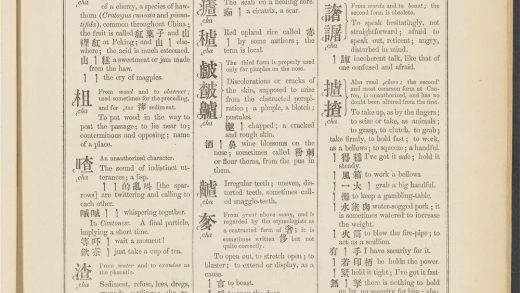 of a cherry, a species of haw-
thorn (Cratægus cuneata and pinna-
tifida), common throughout China;
the fruit is called 紅菓子 and 山
裡紅 at Peking; and 山丨 else-
where; the acid is much esteemed.
山丨糕 a sweetmeat or jam made
from the haw.
丨丨 the cry of magpies.
柤
cha
From wood and to obstruct;
used sometimes for the preceding,
and for cha 渣 sediment.
To put wood in the way to
pass the passage; to lie near to;
conterminous and opposing; name
of a place.
喳
cha
An unauthorized character.
The sound of indistinct ut-
terances; a lisp.
丨丨的亂叫 [the spar-
rows] are twittering and calling to
each other.
丨丨 whispering together.
In Cantonese. A final particle,
implying a short time.
等吓丨 wait a moment!
飲茶丨 just take a cup of tea.
渣
cha
From water and to examine as
the phonetic.
Sediment, refuse, lees, dregs,
The scab on a healing sore
a cicatrix, a scar.
cha
Red upland rice called
丨 by some authors; the
term is local.
The third form is properly used
only for pimples on the nose.
Discolorations or cracks of
the skin, supposed to arise
from the obstructed perspi-
ration; a pimple, a blotch;
pustules.
丨 chapped; a cracked
and rough skin.
酒丨鼻 wine blossoms on the
nose; sometimes called 粉刺
or flour thorns, from the pus in
them.
cha
Irregular teeth; uneven, dis-
torted teeth, sometimes call-
ed maggle-teeth.
奓
cha
From great above many, and is
regarded by the etymologists as
a contracted form of 奢; it is
sometimes written 侈 but not
quite correctly.
To open out, to stretch open; to
bluster; to extend or display, as a
cause.
丨言 to boast.
cha
From words and to boast; the
second form is obsolete.
To speak hesitatingly, not
straightforward; afraid to
speak out, reticent; angry,
disturbed in mind.
丨 incoherent talk, like that of
one confused and afraid.
摣
cha
Also read cha; the second
and most common form at Can-
ton, is unauthorized, and has no
doubt been altered from the first.
To take up, as by the fingers;
to seize or take, as animals;
to grasp, to clutch, to grub;
take firmly, to hold fast; to work,
as a bellows; to squeeze; a handful.
丨得穩 I've got it safe; hold it
steady.
丨風箱 to work a bellows.
一丨火 grab a big handful.
丨 to keep a gambling-table.
丨水猪肉 water-sogged pork; it
is sometimes watered to increase
the weight.
丨火筒 to blow the fire-pipe; to
act as a scullion.
有丨手 I have security for it.
丨印柄 he holds the power.
丨緊 hold it tight; I've got it fast
無丨 there is nothing to hold